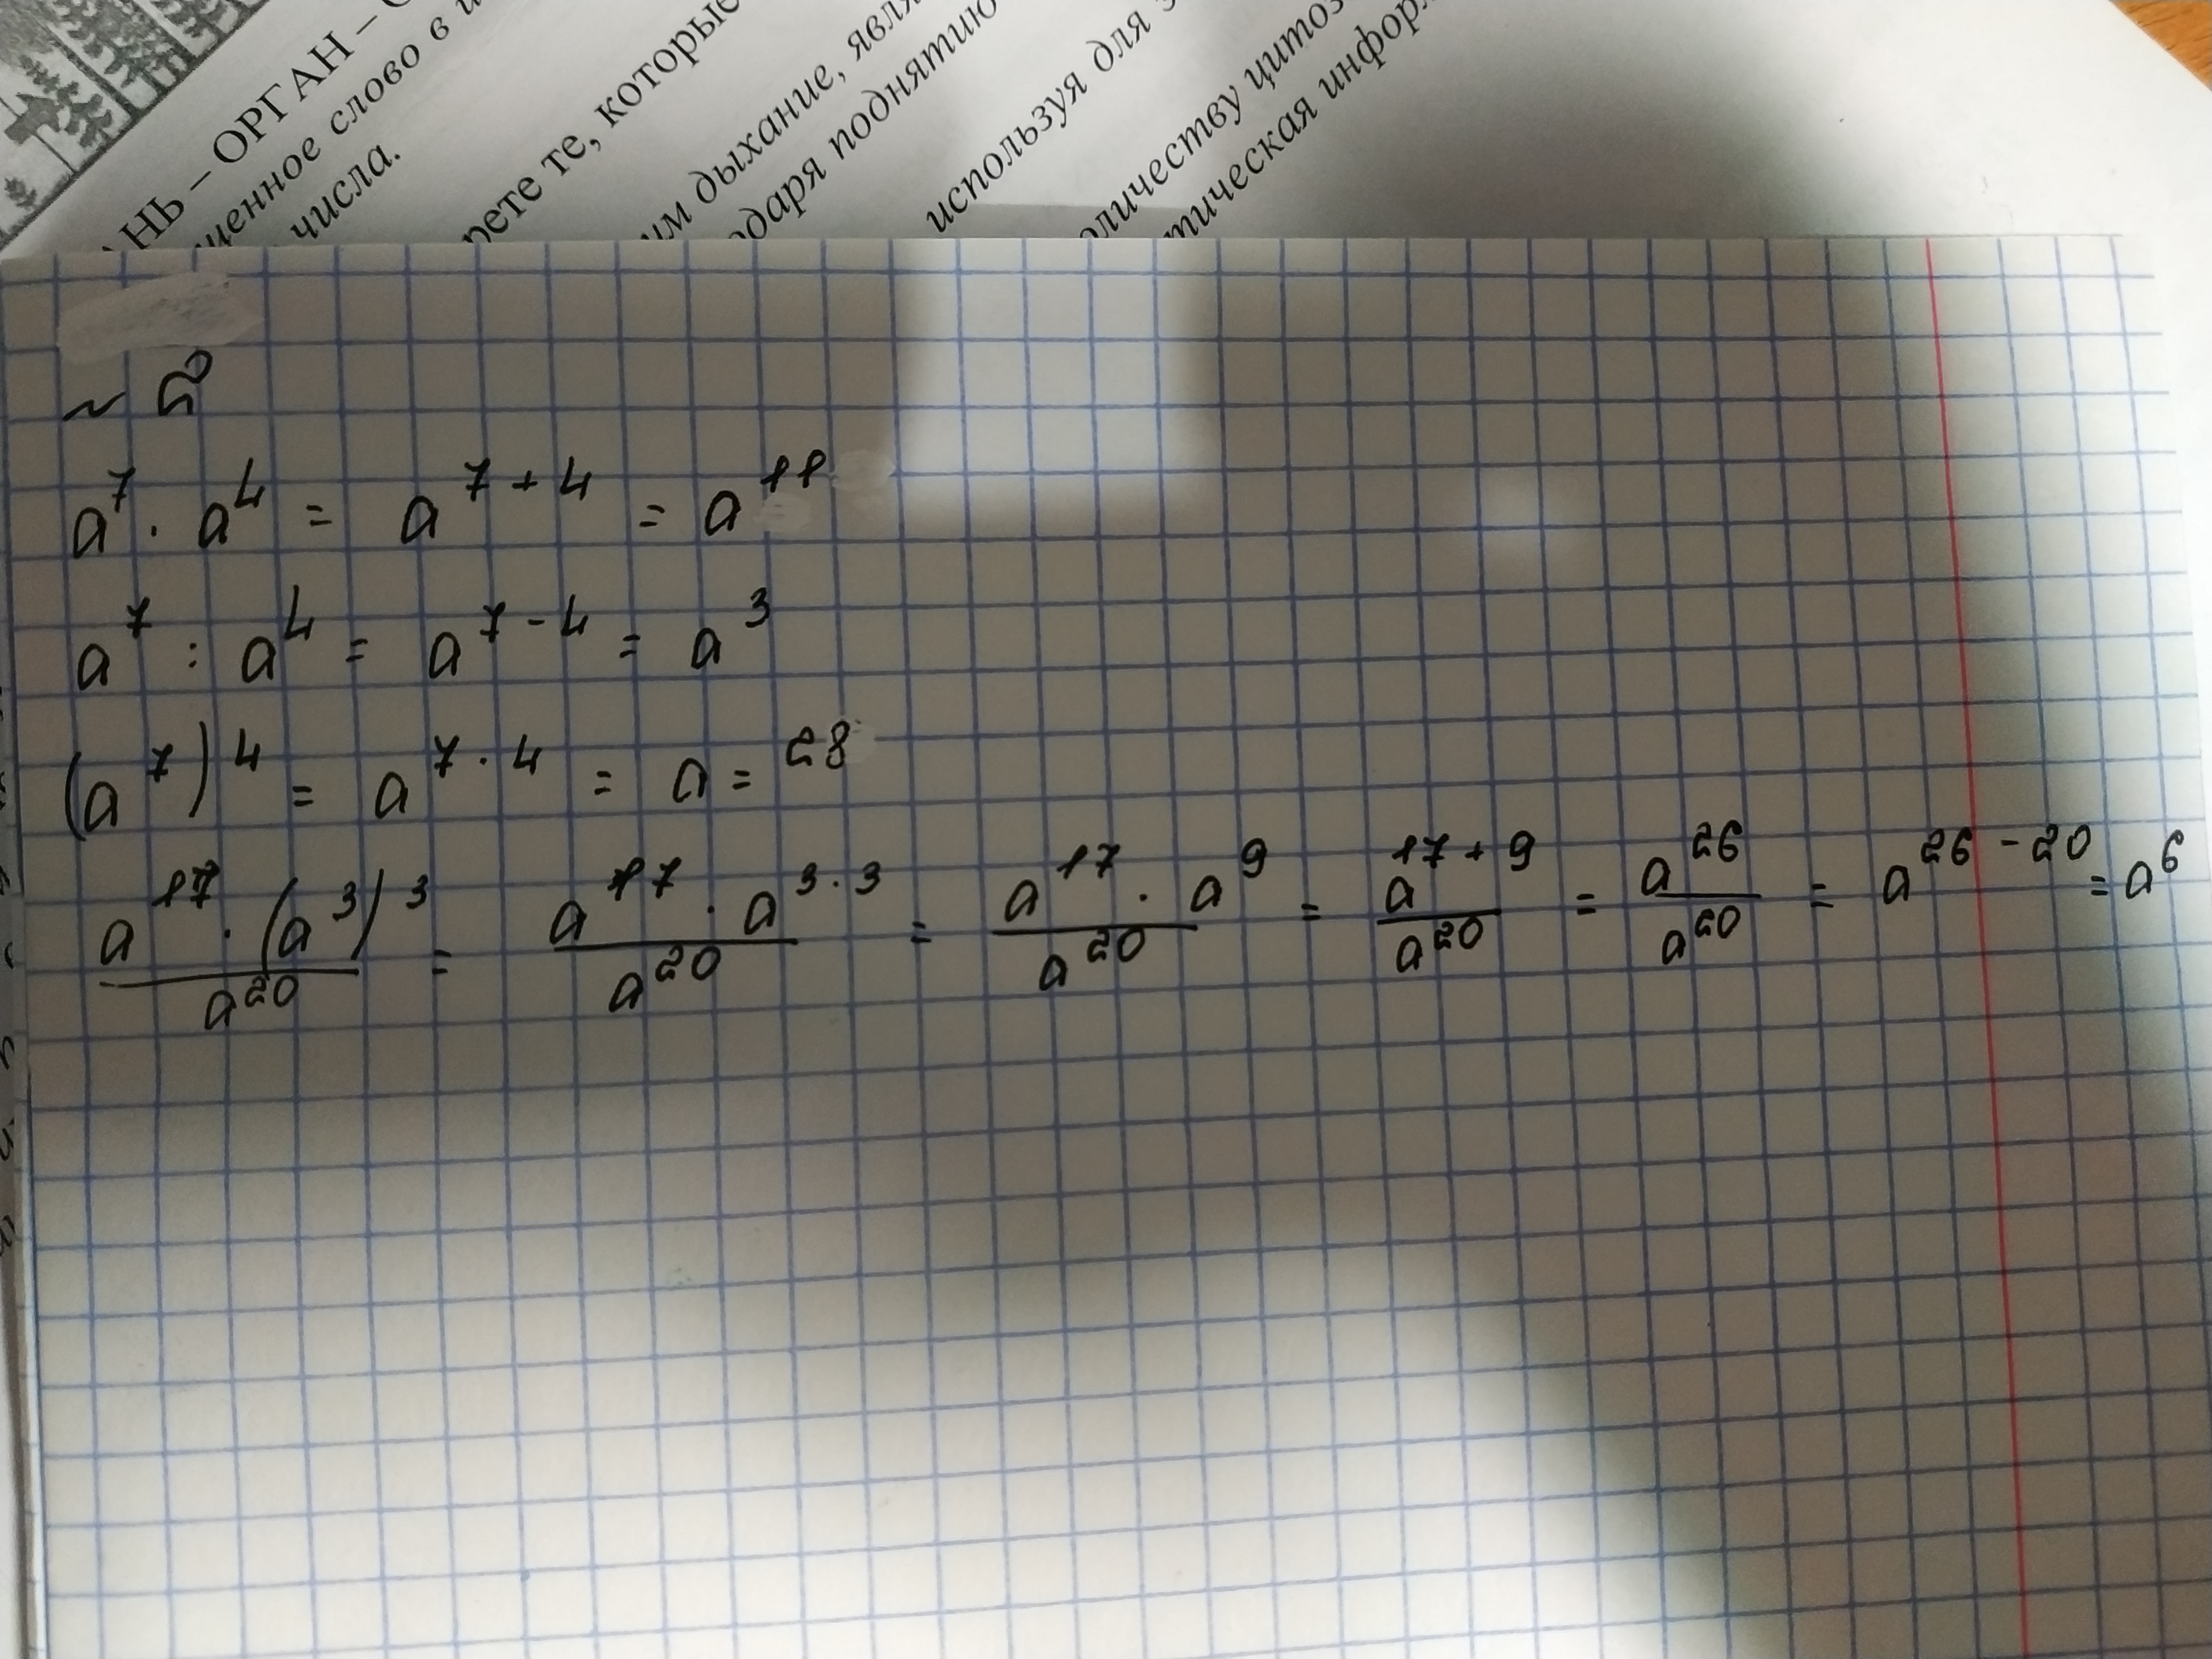 НЬ – ОРГАН –
ценное слово в
числа.
рете те, которые
им дыхание,
одаря поднятию
используя для
оличеству
тическая
~ 5
a⁷ · a⁴ = a⁷⁺⁴ = a¹¹
a⁷ : a⁴ = a⁷⁻⁴ = a³
(a⁷)⁴ = a^(7·4) = a = ²⁸
(a¹⁷ · (a³)³)/a²⁰ = (a¹⁷ · a^(3·3))/a²⁰ = (a¹⁷ · a⁹)/a²⁰ = a¹⁷⁺⁹/a²⁰ = a²⁶/a²⁰ = a²⁶⁻²⁰ = a⁶